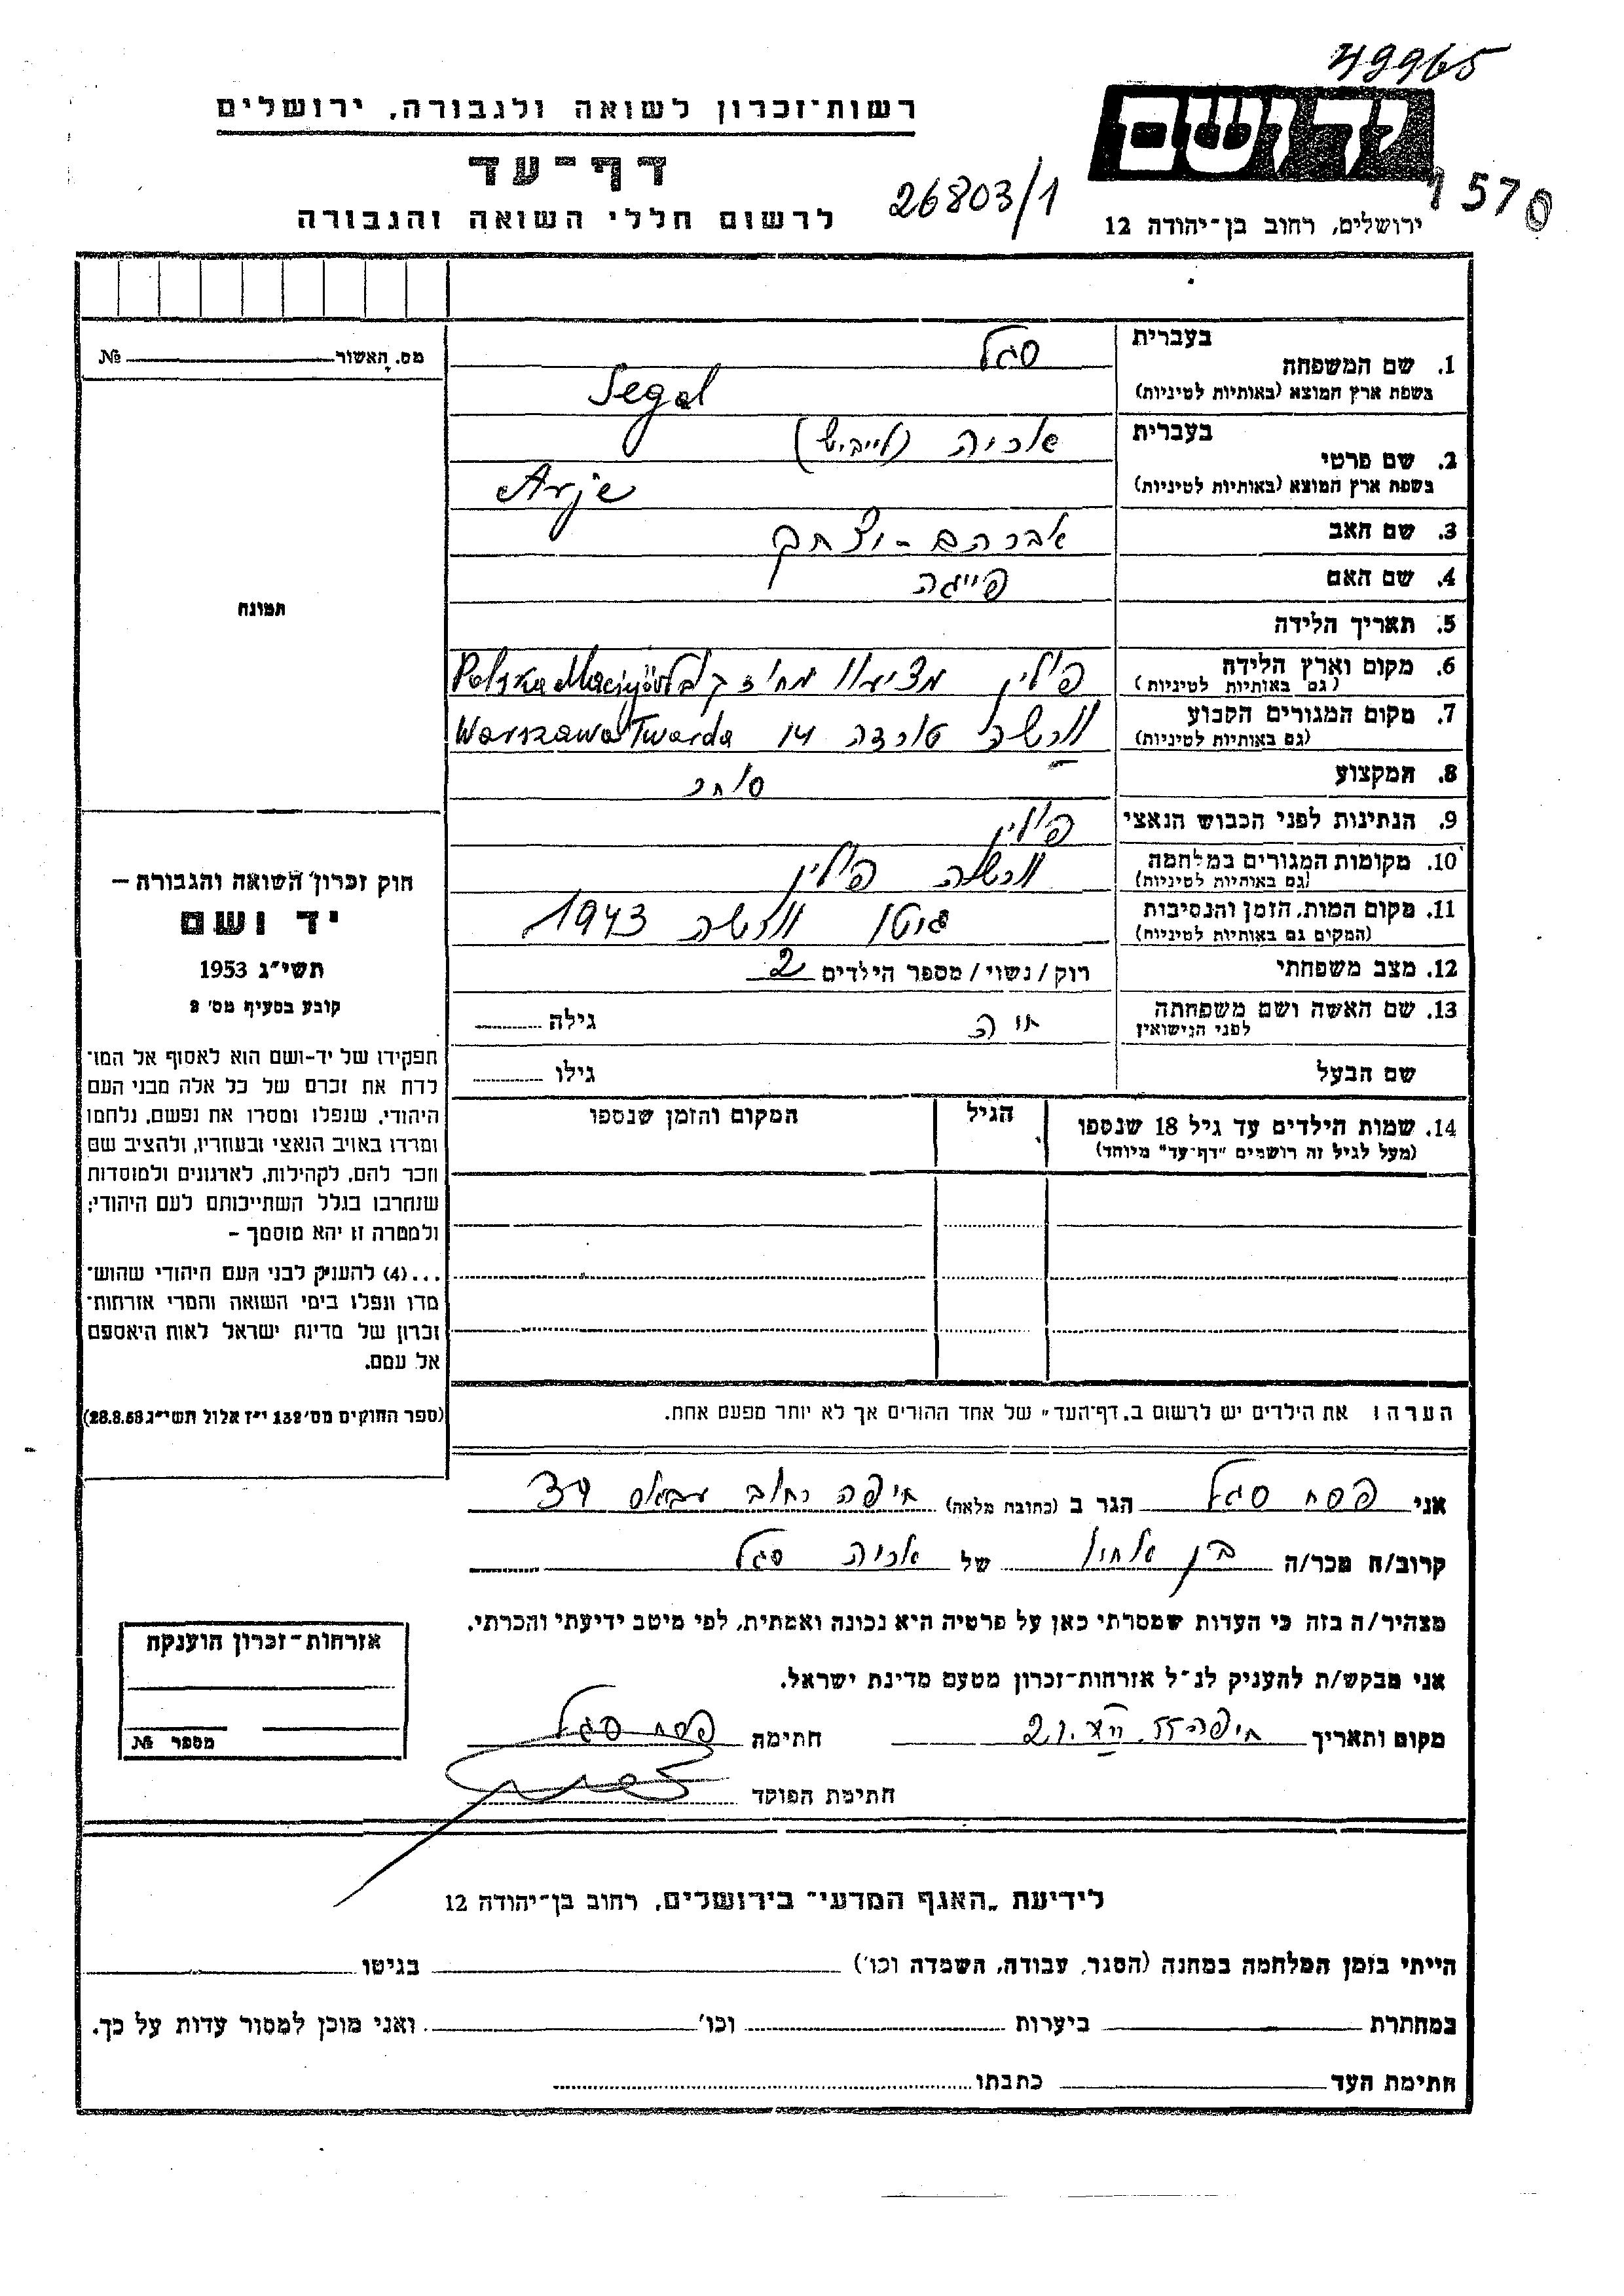 49965
רשות־זכרון לשואה ולגבורה, ירושלים
יד ושם
דף־עד
26803/1
1570
לרשום חללי השואה והגבורה
ירושלים, רחוב בן־יהודה 12
מס. האשור № 
1. שם המשפחה
בעברית סגל
בשפת ארץ המוצא (באותיות לטיניות) Segal
2. שם פרטי
בעברית אריה (לייביש)
בשפת ארץ המוצא (באותיות לטיניות) Arje
3. שם האב אברהם - יצחק
4. שם האם פייגה
תמונה
5. תאריך הלידה
6. מקום וארץ הלידה פולין
(גם באותיות לטיניות) Polska
7. מקום המגורים הקבוע ורשה טורדה 14 Warszawa Twarda
(גם באותיות לטיניות)
8. המקצוע סוחר
9. הנתינות לפני הכבוש הנאצי פולין
10. מקומות המגורים במלחמה ורשה פולין
(גם באותיות לטיניות)
11. מקום המות, הזמן והנסיבות גיטו ורשה 1943
(המקום גם באותיות לטיניות)
12. מצב משפחתי רוק/נשוי/מספר הילדים 2
13. שם האשה ושם משפחתה חוה גילה
לפני הנישואין
שם הבעל גילו
14. שמות הילדים עד גיל 18 שנספו הגיל המקום והזמן שנספו
(מעל לגיל זה רושמים "דף־עד" מיוחד)
חוק זכרון השואה והגבורה –
יד ושם
תשי"ג 1953
קובע בסעיף מס' 2
תפקידו של יד-ושם הוא לאסוף אל המו־
לדת את זכרם של כל אלה מבני העם
היהודי, שנפלו ומסרו את נפשם, נלחמו
ומרדו באויב הנאצי ובעוזריו, ולהציב שם
וזכר להם, לקהילות, לארגונים ולמוסדות
שנחרבו בגלל השתייכותם לעם היהודי;
ולמטרה זו יהא מוסמך –
...(4) להעניק לבני העם היהודי שהוש־
מדו ונפלו בימי השואה והמרי אזרחות־
זכרון של מדינת ישראל לאות היאספם
אל עמם.
(ספר החוקים מס' 132 י"ז אלול תשי"ג 28.8.53)
הערה: את הילדים יש לרשום ב„דף־העד" של אחד ההורים אך לא יותר מפעם אחת.
אני פסח סגל הגר ב (כתובת מלאה) חיפה רחוב עבאס 37
קרוב/ה מכר/ה בן אחיו של אריה סגל
מצהיר/ה בזה כי העדות שמסרתי כאן על פרטיה היא נכונה ואמתית, לפי מיטב ידיעתי והכרתי.
אני מבקש/ת להעניק לנ"ל אזרחות־זכרון מטעם מדינת ישראל.
מקום ותאריך חיפה 21.XII.55 חתימה פסח סגל
חתימת הפוקד
אזרחות־זכרון הוענקה
מספר №
לידיעת „האגף המדעי" בירושלים, רחוב בן־יהודה 12
הייתי בזמן המלחמה במחנה (הסגר, עבודה, השמדה וכו') בגיטו
במחתרת ביערות וכו' ואני מוכן למסור עדות על כך.
חתימת העד כתבתו